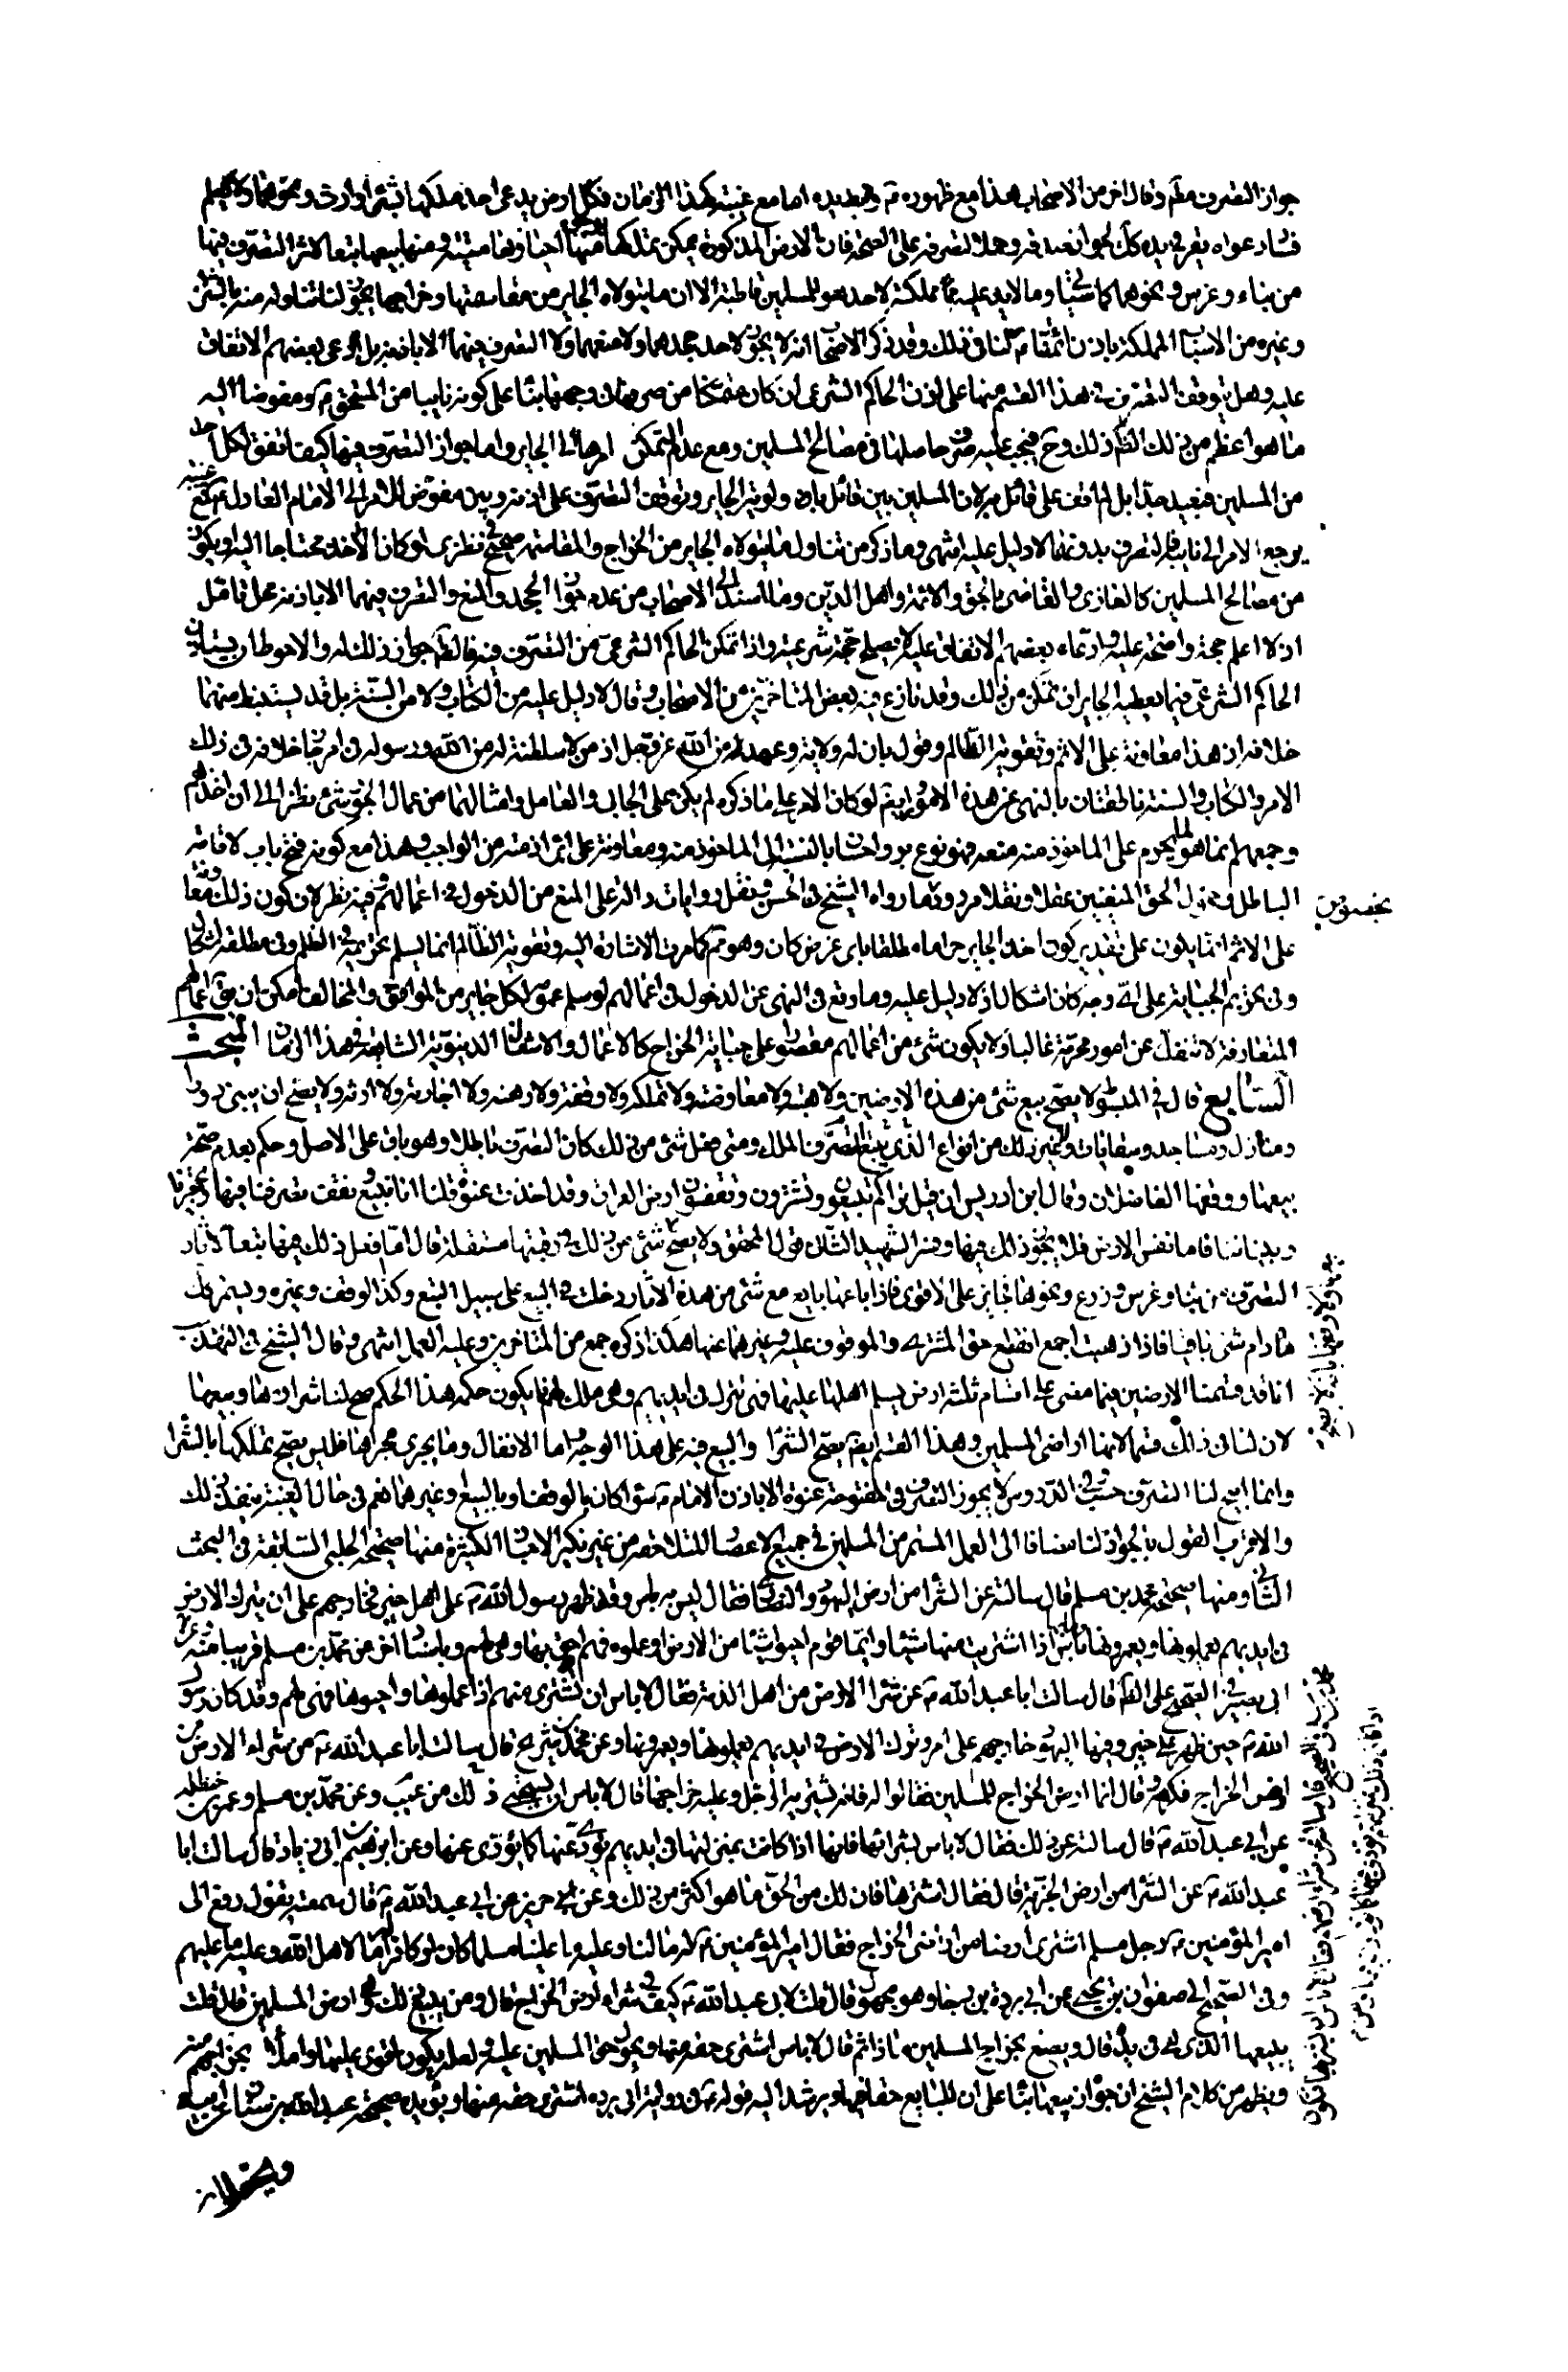 جواز التصرف ثم وقال اخر من الاصحاب هذا مع ظهوره ع وبسط يده اما مع غيبته كهذا الزمان فكل ارض يدعى احد ملكها بشراء وارث ونحوهما ولا يعلم
فساد دعواه يقر في يده كك لجواز صدقه وحملا لتصرفه على الصحة فان الارض المذكورة يمكن تملكها احياؤها ميتة ومنها بيعها تبعا لاثر التصرف فيها
من بناء وغرس ونحوهما كما سيأتي وما لا يد عليه مملكة لاحد هو للمسلمين قاطبة الا ان ما يتولاه الجاير من مقاسمتها وخراجها يجوز لنا تناوله منه بالشراء
وغيره من الاسباب المملكة باذن ائمتنا لنا في ذلك وقد ذكر الاصحاب انه لا يجوز لاحد جحدهما ولا منعهما ولا التصرف فيهما الا باذنه بل ادعى بعضهم الاتفاق
عليه وهل يتوقف التصرف في هذا القسم منها على اذن الحاكم الشرعي ان كان متمكنا من صرفها في وجهها بناء على كونه نايبا من المستحق ع ومفوضا اليه
ما هو اعظم من ذلك الظ ذلك وح فيجب عليه صرف حاصلها في مصالح المسلمين ومع عدم التمكن امرها الى الجاير واما جواز التصرف فيها كيف اتفق لكل احد
من المسلمين فبعيد جدا بل لم اقف على قائل به لان المسلمين بين قائل باولوية الجاير وتوقف التصرف على اذنه وبين مفوض الامر الى الامام العادل ع فمع غيبته
يرجع الامر الى نايبه فالتصرف بدونهما لا دليل عليه انتهى وما ذكر من تناول ما يتولاه الجاير من الخراج والمقاسمة صحيح في نظري لو كان الاخذ محتاجا اليه او يكون
من مصالح المسلمين كالغازي والقاضي بالحق والائمة واهل الدين وما اسند الى الاصحاب من عدم جواز الجحد والمنع والتصرف فيهما الا باذنه محل تامل
اذ لا اعلم حجة واضحة عليه وادعاء بعضهم الاتفاق عليه لا يصلح حجة شرعية واذا تمكن الحاكم الشرعي من التصرف فيه فالظ جواز ذلك له والاحوط ان يستاذن
الحاكم الشرعي فيما يعطيه الجاير ان تمكن من ذلك وقد نازع فيه بعض المتاخرين من الاصحاب وقال لا دليل عليه من الكتاب ولا من السنة بل قد يستنبط منهما
خلافه اذ هذا معاونة على الاثم وتقوية الظالم وقول بان له ولاية وعهدا من الله عز وجل اذ من لا سلطنة له من الله ورسوله في امر جاز خلافه في ذلك
الامر والكتاب والسنة ناطقتان بالنهي عن هذه الامور ايضا ثم لو كان الامر على ما ذكره لم يكن على الجابي والعامل وامثالهما من عمال الجور شيء نظرا الى ان اخذهم
وجمعهم انما هو لما يحرم على الماخوذ منه منعه فهو نوع بر واحسان بالنسبة الى الماخوذ منه ومعاونة على ابراء ذمته من الواجب وهذا مع كونه فتح باب لاقامة
الباطل وخمول الحق المنفيين عقلا ونقلا مردود بما رواه الشيخ في الحسن ونقل روايات دالة على المنع من الدخول في اعمالهم وفيه نظر لان كون ذلك معاونة
على الاثم انما يكون على تقدير كون اخذ الجاير حراما مطلقا باي غرض كان وهو ثم كما مرت الاشارة اليه وتقوية الظالم انما يسلم تحريمه في الظلم وفي مطلقه اشكال
وفي تحريم الجباية على اي وجه كان اشكال اذ لا دليل عليه وما وقع في النهي عن الدخول في اعمالهم لو سلم عمومه لكل جاير من الموافق والمخالف امكن ان يق اعمالهم
المتعارفة لا تنفك عن امور محرمة غالبا ولا يكون شيء من اعمالهم مقصورا على جباية الخراج كالاعمال والاشغال الديوانية الشايعة في هذا الزمان المبحث
السابع قال في المبسوط لا يصح بيع شيء من هذه الارضين ولا هبته ولا معاوضته ولا تملكه ولا وقفه ولا رهنه ولا اجارته ولا ارثه ولا يصح ان يبنى دورا
ومنازل ومساجد وسقايات ولا غير ذلك من انواع التصرف الذي يتبع الملك ومتى فعل شيء من ذلك كان التصرف باطلا وهو باق على الاصل وحكم بعدم صحة
بيعها ووقفها الفاضلان وقال ابن ادريس ان قيل نراكم تبيعون وتشترون وتقفون ارض العراق وقد اخذت عنوة قلنا انا نبيع ونقف تصرفنا فيها وتحجيرنا
وبنياننا فاما نفس الارض فلا يجوز ذلك فيها وفسر الشهيد الثاني قول المحقق ولا يصح شيء من ذلك في رقبتها مستقلة قال اما فعل ذلك فيها تبعا لاثار
التصرف من بناء وغرس وزرع ونحوها فجايز على الاقوى فاذا باعها بايع مع شيء من هذه الاثار دخلت في البيع على سبيل التبع وكذا الوقف وغيره ويستمر كك
ما دام شيء باقيا فاذا ذهبت اجمع انقطع حق المشتري والموقوف عليه وغيرهما عنها هكذا ذكره جمع من المتاخرين وعليه العمل انتهى وقال الشيخ في التهذيب
انا قد قسمنا الارضين فيما مضى على اقسام ثلثة ارض يسلم اهلها عليها فهي تترك في ايديهم وهي ملك لهم فما يكون حكمه هذا الحكم صح لنا شراؤها وبيعها
لان لنا في ذلك قسما لانها اراضي المسلمين وهذا القسم ايضا يصح الشراء والبيع فيه على هذا الوجه واما الانفال وما يجري مجراها فليس يصح تملكها بالشراء
وانما ابيح لنا التصرف حسب وفي الدروس لا يجوز التصرف في المفتوحة عنوة الا باذن الامام ع سواء كان بالوقف او بالبيع او غيرهما نعم في حال الغيبة ينفذ ذلك
والاقرب القول بالجواز لنا مضافا الى العمل المستمر من المسلمين في جميع الاعصار المتلاحقة من غير نكير الاخبار الكثيرة منها صحيحة الحلبي السابقة في البحث
الثاني ومنها صحيحة محمد بن مسلم قال سالته عن الشراء من ارض اليهود والنصارى فقال ليس به باس وقد ظهر رسول الله ص على اهل خيبر فخارجهم على ان يترك الارض
في ايديهم يعملونها ويعمرونها فلا باس اذا اشتريت منها شيئا وايما قوم احيوا شيئا من الارض او عملوه فهم احق بها وهي لهم وباسناد اخر عن محمد بن مسلم قريبا منه وعن
ابي بصير في الصحيح على الظ قال سالت ابا عبد الله ع عن شراء الارض من اهل الذمة فقال لا باس ان يشتري منهم اذا عملوها واحيوها فهي لهم وقد كان رسول
الله ص حين ظهر على خيبر وفيها اليهود خارجهم على امر وترك الارض في ايديهم يعملونها ويعمرونها وعن محمد بن شريح قال سالت ابا عبد الله ع عن شراء الارض من
ارض الخراج فكرهه وقال انما ارض الخراج للمسلمين فقالوا له فانه يشتريها الرجل وعليه خراجها قال لا باس الا ان يستحيي من ذلك من عيب وعن محمد بن مسلم وعمر بن حنظلة
عن ابي عبد الله ع قال سالته عن ذلك فقال لا باس بشرائها فانها اذا كانت بمنزلتها في ايديهم يؤدى عنها كما يؤدى عنها وعن ابراهيم بن ابي زياد قال سالت ابا
عبد الله ع عن الشراء من ارض الجزية قال فقال اشترها فان لك من الحق ما هو اكثر من ذلك وعن حريز عن ابي عبد الله ع قال سمعته يقول رفع الى
امير المؤمنين ع رجل مسلم اشترى ارضا من اراضي الخراج فقال امير المؤمنين ع له ما لنا وعليه ما علينا مسلما كان او كافرا له ما لاهل الله وعليه ما عليهم
وفي الصحيح الى صفوان بن يحيى عن ابي بردة بن رجا وهو مجهول قال قلت لابي عبد الله ع كيف ترى في شراء ارض الخراج قال ومن يبيع ذلك هي ارض المسلمين قال قلت
يبيعها الذي هي في يده قال ويصنع بخراج المسلمين ماذا ثم قال لا باس اشترى حقه منها ويحول حق المسلمين عليه ولعله يكون اقوى عليها واملأ بخراجهم منه
ويظهر من كلام الشيخ ان جواز بيعها بناء على ان للبايع حقا فيها ويرشد اليه قوله ع في رواية ابي بردة اشترى حقه منها ويؤيده صحيحة عبد الله بن سنان عن ابيه